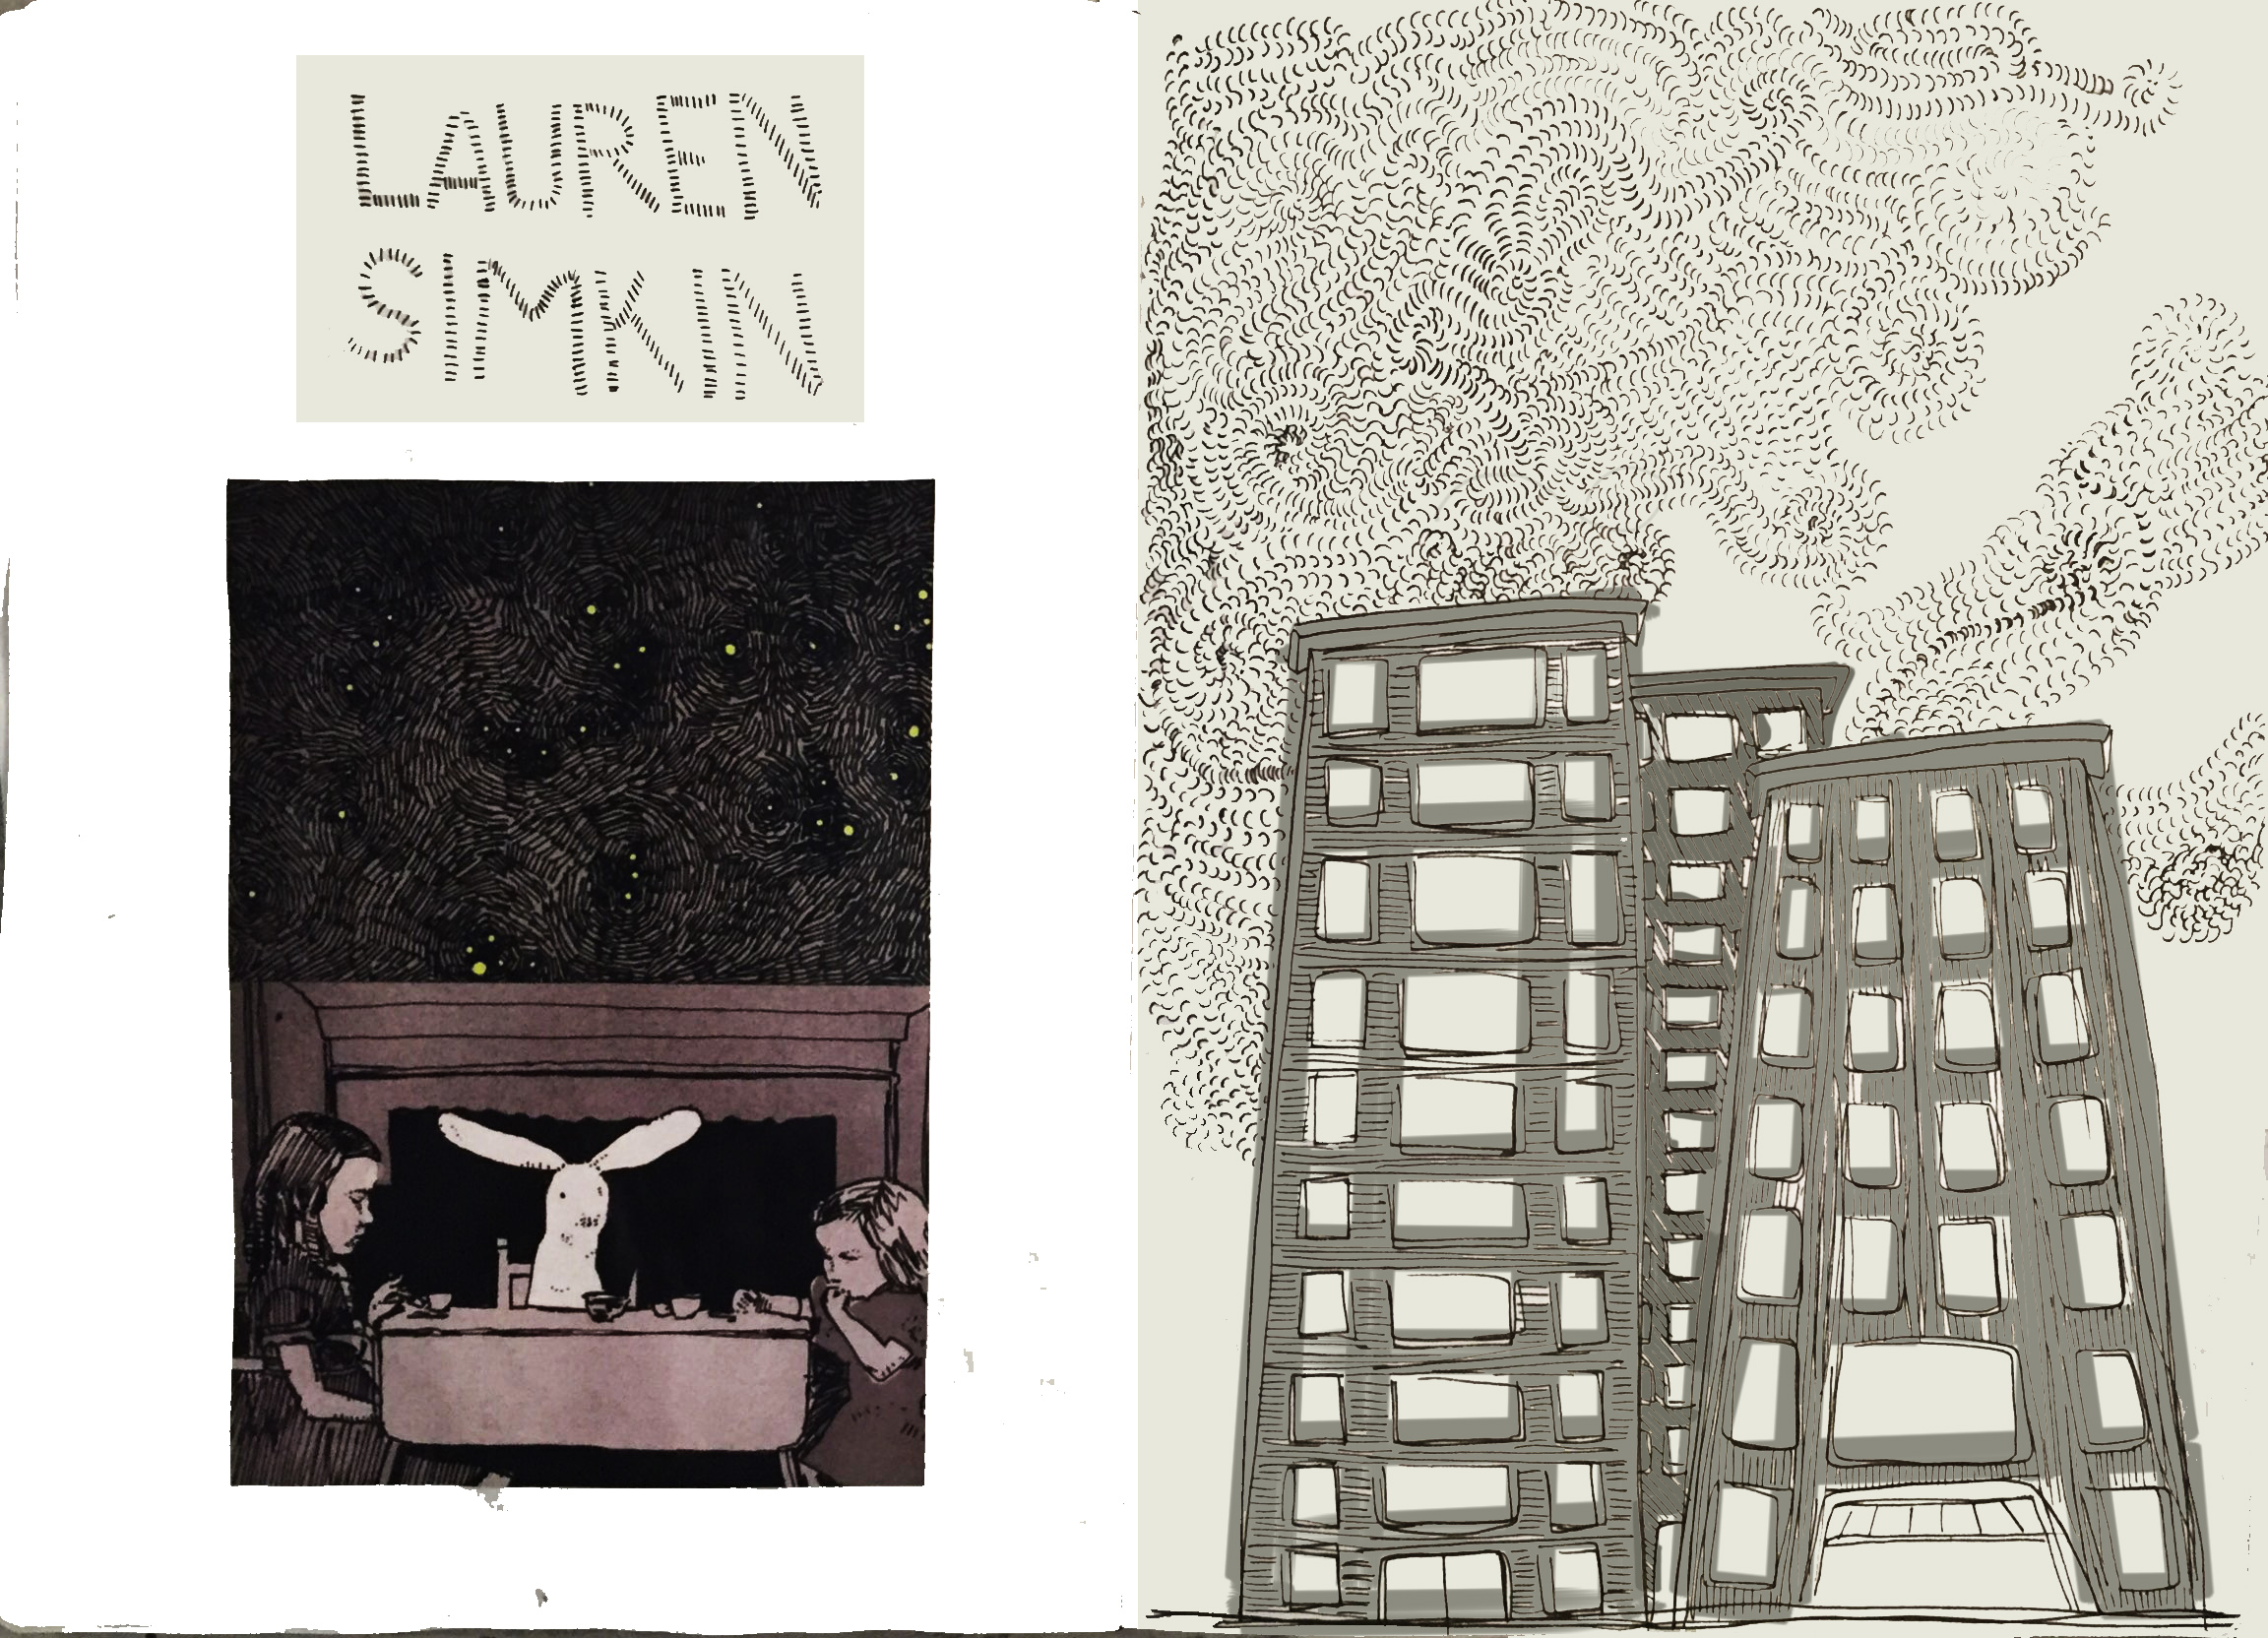 LAUREN
SIMKIN